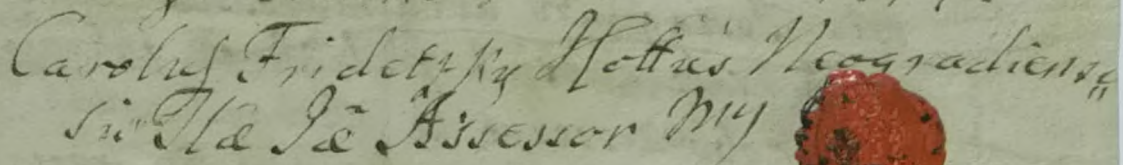 Carolus Fridetzky Hottus Neogradiens„
sis Tlæ Jæ Assessor mp